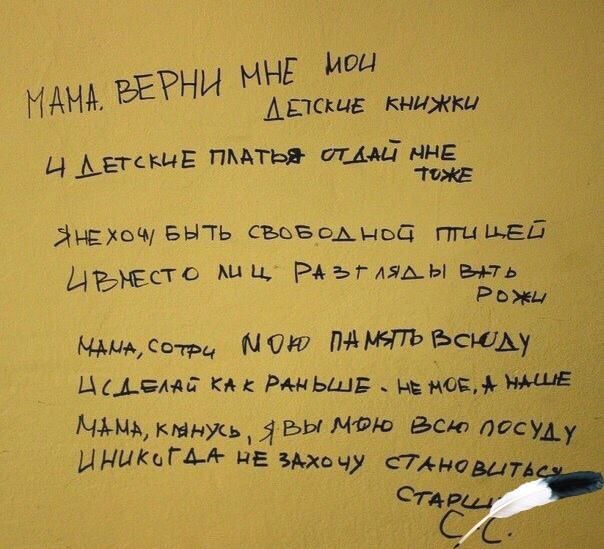 МАМА. ВЕРНИ МНЕ МОИ
ДЕТСКИЕ КНИЖКИ
И ДЕТСКИЕ ПЛАТЬЯ ОТДАЙ МНЕ
ТОЖЕ
Я НЕ ХОЧУ БЫТЬ СВОБОДНОЙ ПТИЦЕЙ
И ВМЕСТО ЛИЦ РАЗГЛЯДЫВАТЬ
РОЖИ
МАМА, СОТРИ МОЮ ПАМЯТЬ ВСЮДУ
И СДЕЛАЙ КАК РАНЬШЕ. НЕ МОЕ, А НАШЕ
МАМА, КЛЯНУСЬ, Я ВЫМОЮ ВСЮ ПОСУДУ
И НИКОГДА НЕ ЗАХОЧУ СТАНОВИТЬСЯ
С.С.